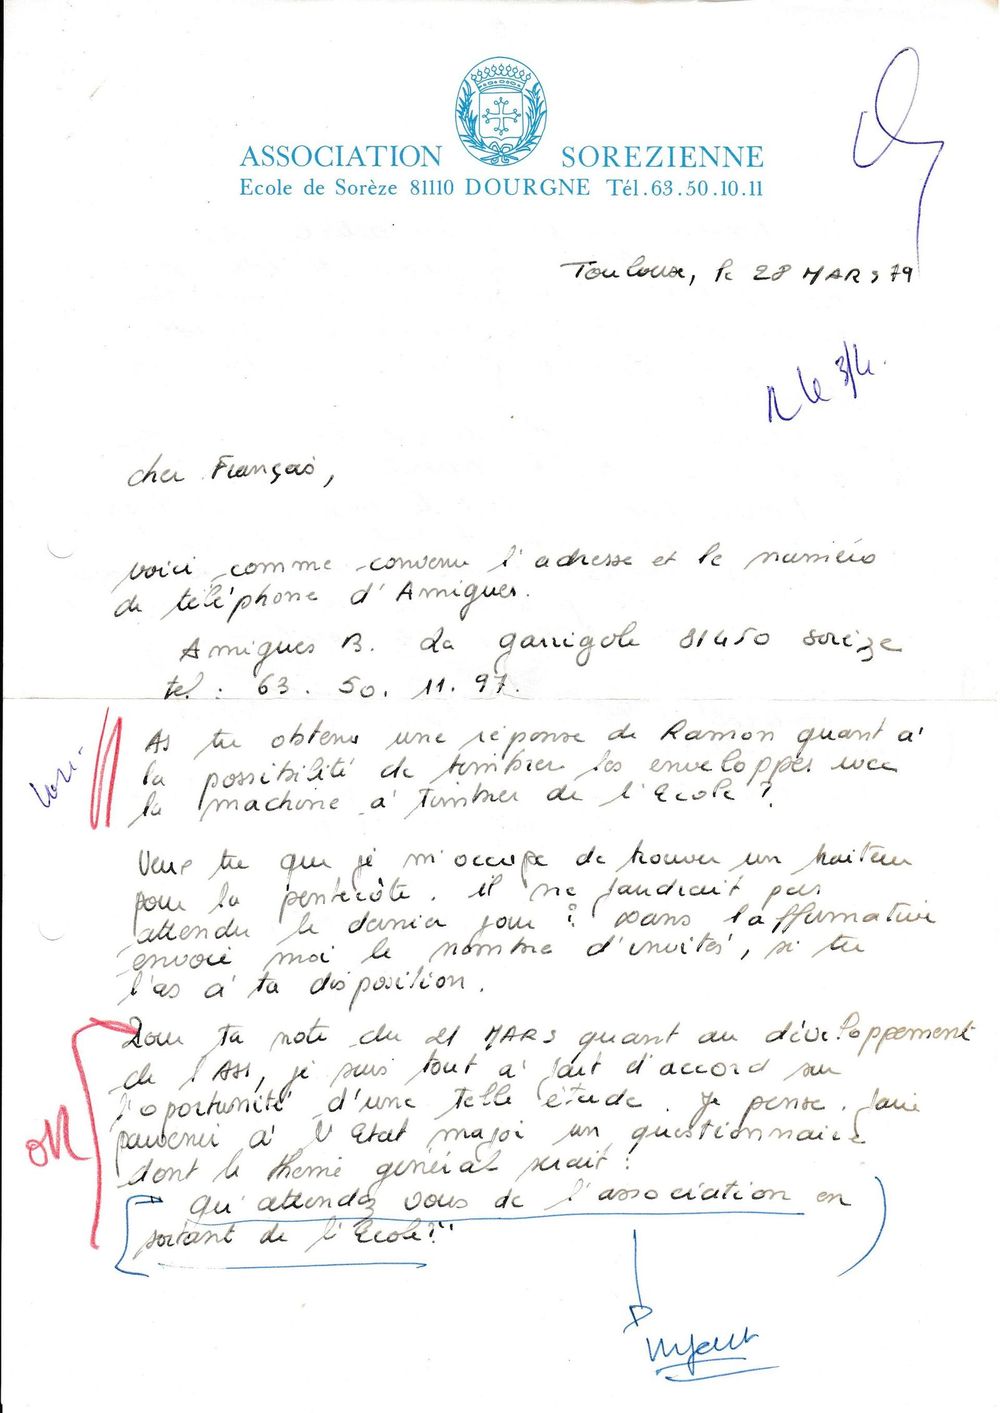 ASSOCIATION SOREZIENNE
Ecole de Sorèze 81110 DOURGNE Tél.63.50.10.11
Toulouse, le 28 MARS 79
R le 3/4.
cher François,
voici comme convenu l'adresse et le numéro
de téléphone d'Amigues.
Amigues B. La garrigole 81450 Sorèze
tel : 63. 50. 11. 97.
As tu obtenu une réponse de Ramon quant à
la possibilité de timbrer les enveloppes avec
la machine à timbrer de l'Ecole ?
Veux tu que je m'occupe de trouver un traiteur
pour la pentecôte. il ne faudrait pas
attendre le dernier jour ? Dans l'affirmative
envoie moi le nombre d'invités, si tu
l'as à ta disposition.
Pour ta note du 21 MARS quant au développement
de l'ASS, je suis tout à fait d'accord sur
l'oportunité d'une telle étude. Je pense faire
parvenir à l'Etat major un questionnaire
dont le thème général serait :
OK
qu'attendez vous de l'association en
sortant de l'Ecole ?"
Urgent